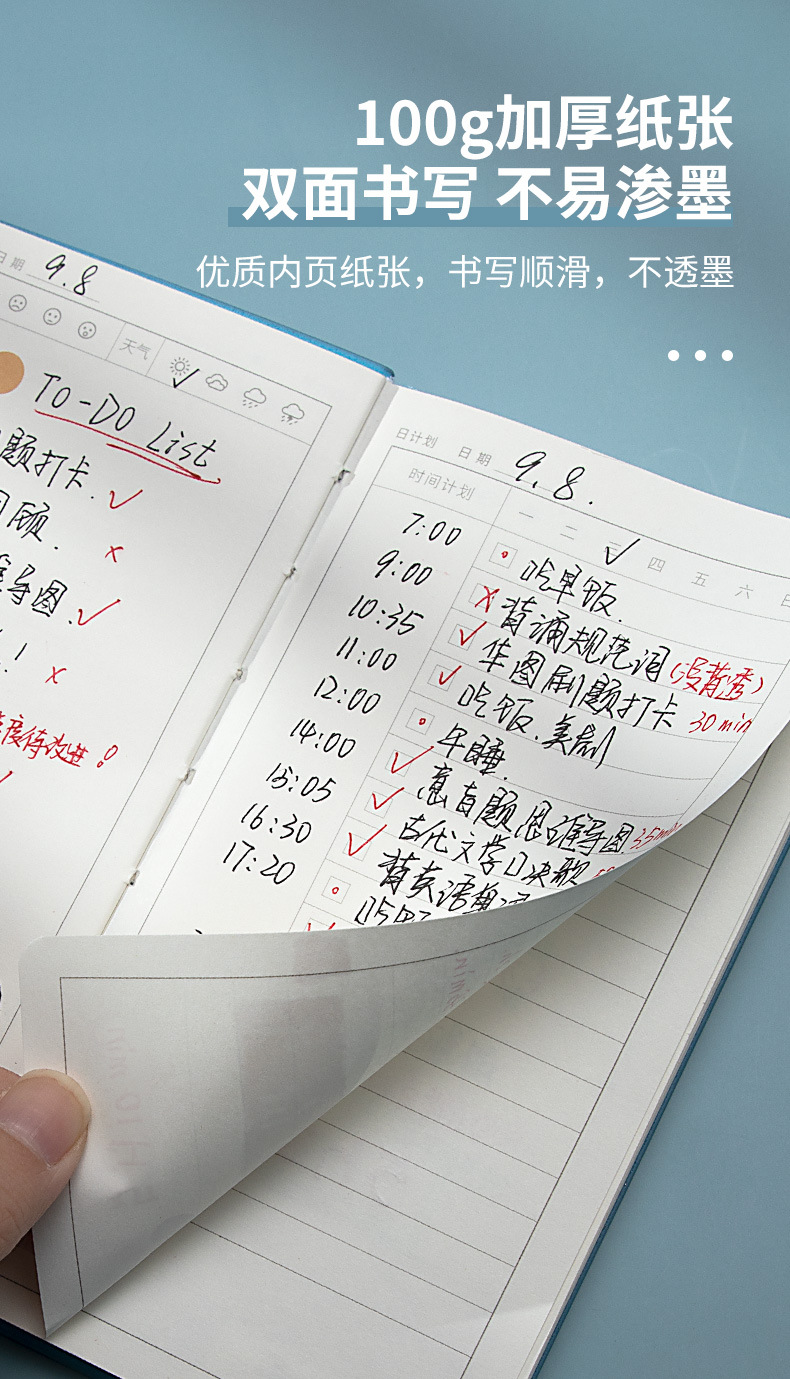 100g加厚纸张
双面书写 不易渗墨
优质内页纸张，书写顺滑，不透墨
日期 9.8
天气
To-Do List
题打卡.
顾.
导图.
！
度待改进！
日计划 日期 9.8.
时间计划 一 二 四 五 六 日
7:00 吃早饭.
9:00 背诵规范词（没背透）
10:35 华图刷题打卡 30min
11:00 吃饭.美剧
12:00 午睡.
14:00 意言题思维导图 35min
15:05 古代文学口决歌
16:30 背英语单词
17:20 吃